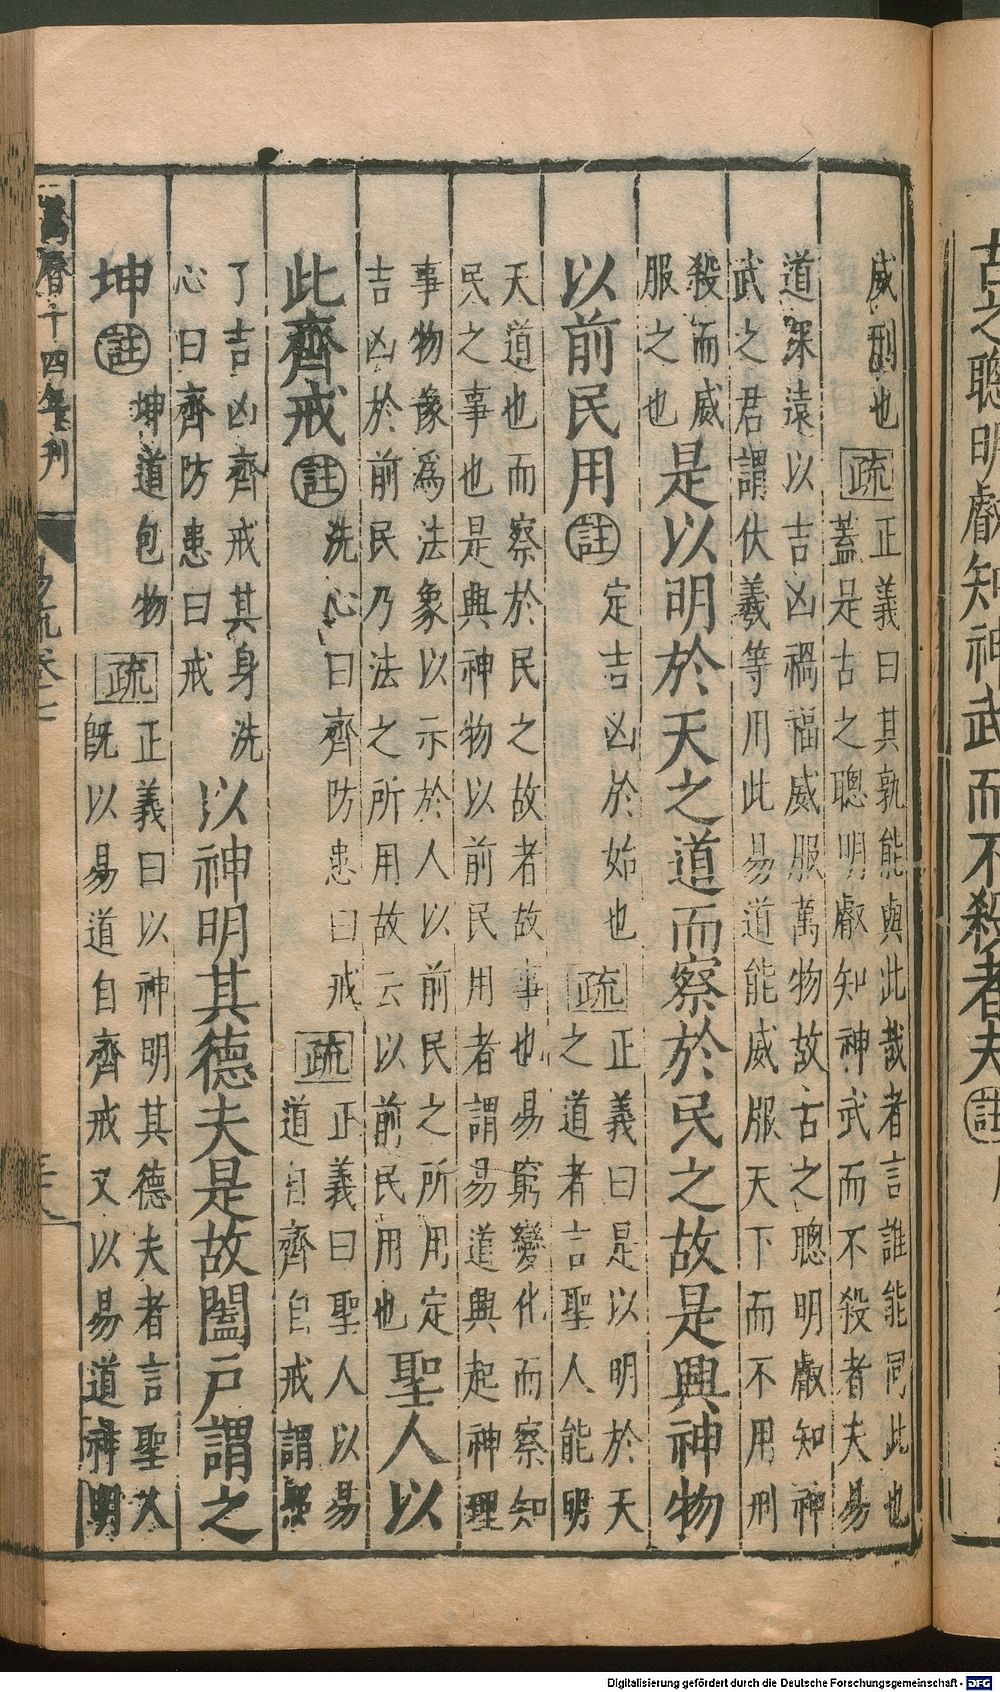 古之聰明叡知神武而不殺者夫註
威刑也
疏
正義曰其孰能與此哉者言誰能同此也
蓋是古之聰明叡知神武而不殺者夫易
道深遠以吉凶禍福威服萬物故古之聰明叡知神
武之君謂伏羲等用此易道能威服天下而不用刑
殺而威
服之也
是以明於天之道而察於民之故是興神物
以前民用註
定吉凶於始也
疏
正義曰是以明於天
之道者言聖人能明
天道也而察於民之故者故事也易窮變化而察知
民之事也是興神物以前民用者謂易道興起神理
事物豫為法象以示於人以前民之所用定
吉凶於前民乃法之所用故云以前民用也
聖人以
此齊戒註
洗心曰齊防患曰戒
疏
正義曰聖人以易
道自齊自戒謂照
了吉凶齊戒其身洗
心曰齊防患曰戒
以神明其德夫是故闔戶謂之
坤註
坤道包物
疏
正義曰以神明其德夫者言聖人
旣以易道自齊戒又以易道神明
萬曆十四年刊
易疏卷七
Digitalisierung gefördert durch die Deutsche Forschungsgemeinschaft - DFG